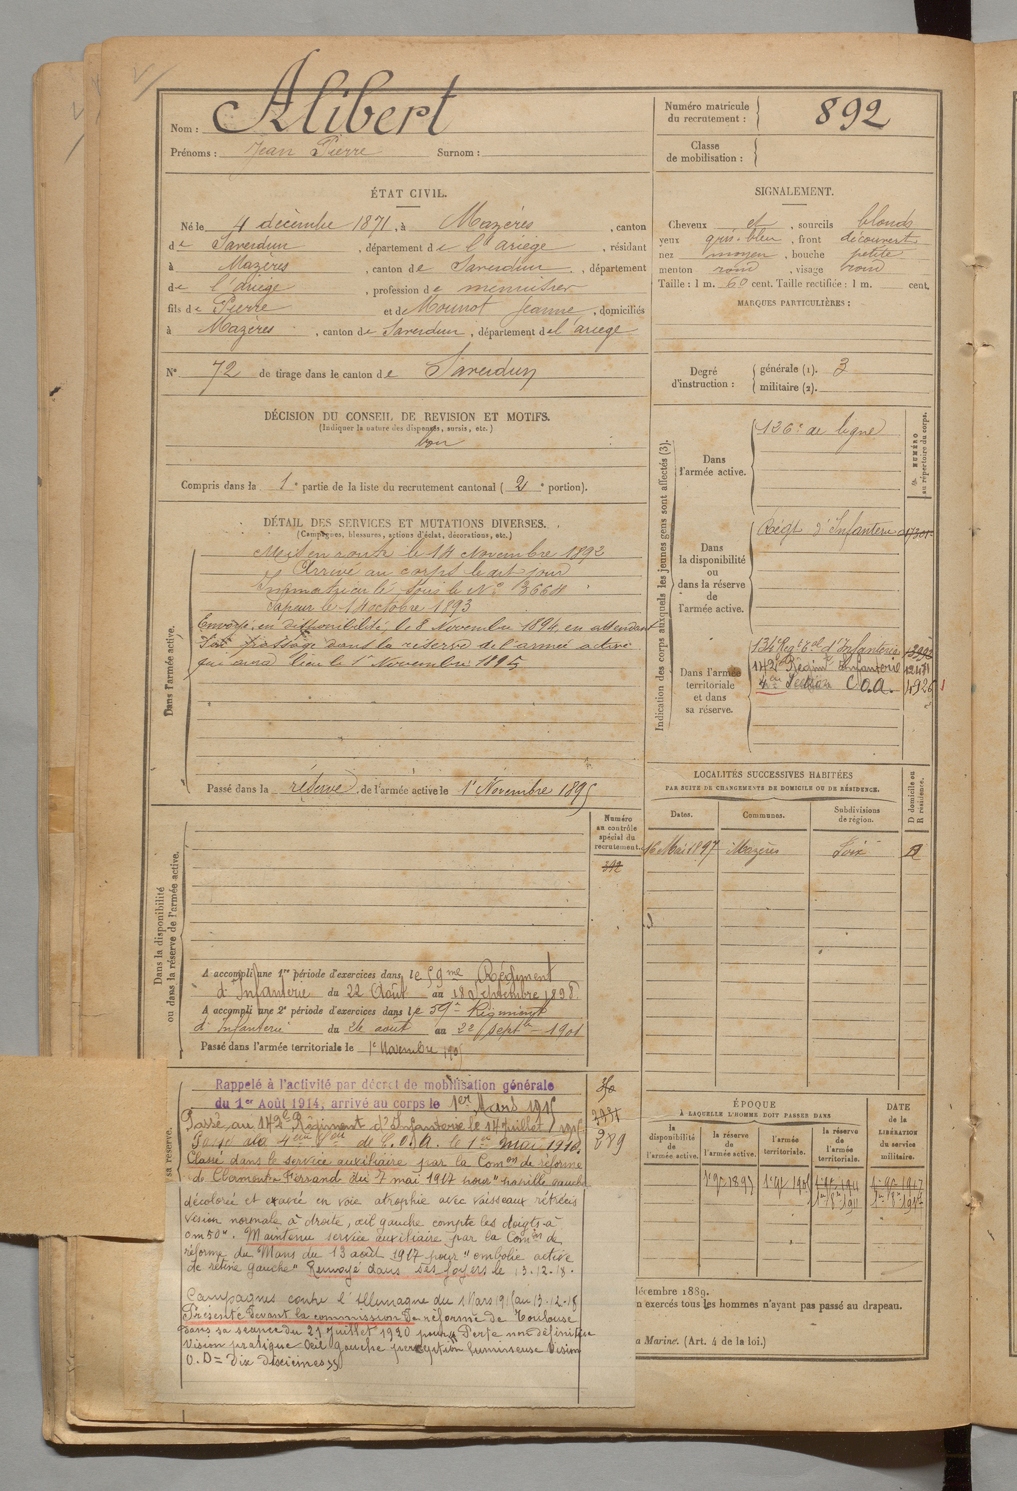 Nom : Alibert
Prénoms : Jean Pierre Surnom :
Numéro matricule du recrutement : 892
Classe de mobilisation :
ÉTAT CIVIL.
Né le 4 décembre 1871, à Mazères, canton
de Saverdun, département de l'ariège, résidant
à Mazères, canton de Saverdun, département
de l'ariège, profession de menuisier
fils de Pierre et de Mounot Jeanne, domiciliés
à Mazères, canton de Saverdun, département de l'ariège
N° 72 de tirage dans le canton de Saverdun
SIGNALEMENT.
Cheveux et, sourcils blonds
yeux gris-bleu, front découvert
nez moyen, bouche petite
menton rond, visage rond
Taille : 1 m. 60 cent. Taille rectifiée : 1 m. cent.
MARQUES PARTICULIÈRES :
Degré d'instruction : générale (1). 3
militaire (2).
DÉCISION DU CONSEIL DE REVISION ET MOTIFS.
(Indiquer la nature des dispenses, sursis, etc.)
bon
Compris dans la 1e partie de la liste du recrutement cantonal (2e portion).
DÉTAIL DES SERVICES ET MUTATIONS DIVERSES.
(Campagnes, blessures, actions d'éclat, décorations, etc.)
Dans l'armée active.
Mis en route le 14 Novembre 1892
Arrivé au corps le dit jour
Immatriculé sous le N° 3664
Sapeur le 14 octobre 1893
Envoyé en disponibilité le 8 Novembre 1894, en attendant
son passage dans la réserve de l'armée active
qui aura lieu le 1er Novembre 1895
Passé dans la réserve de l'armée active le 1er Novembre 1895
Indication des corps auxquels les jeunes gens sont affectés (3).
NUMÉRO au répertoire du corps.
Dans l'armée active.
126e de ligne
Dans la disponibilité ou dans la réserve de l'armée active.
Régt d'Infanterie
Dans l'armée territoriale et dans sa réserve.
134e Regt Tal d'Infanterie
142e Régimt Infanterie
4e Section C.O.A. 4926
LOCALITÉS SUCCESSIVES HABITÉES
PAR SUITE DE CHANGEMENTS DE DOMICILE OU DE RÉSIDENCE.
D domicile ou R résidence.
Dates. Communes. Subdivisions de région.
16 Mai 1897 Mazères Foix R
Dans la disponibilité ou dans la réserve de l'armée active.
Numéro au contrôle spécial du recrutement.
392
A accompli une 1re période d'exercices dans le 59me Régiment
d'Infanterie du 22 Août au 18 Septembre 1898.
A accompli une 2e période d'exercices dans le 59e Régiment
d'Infanterie du 26 août au 22 septbre 1901
Passé dans l'armée territoriale le 1er Novembre 1905
sa réserve.
Rappelé à l'activité par décret de mobilisation générale
du 1er Août 1914, arrivé au corps le 1er Mars 1915
Passé au 142e Régiment d'Infanterie le 14 juillet 1915
Passé à la 4e Son de C.O.A. le 1er mai 1916.
Classé dans le service auxiliaire par la Comon de réforme
de Clermont-Ferrand du 7 mai 1917 pour "papille gauche
décolorée et excavée en voie atrophie avec vaisseaux rétrécis
vision normale à droite, œil gauche compte les doigts à
0m50". Maintenu service auxiliaire par la Comon de
réforme du Mans du 13 août 1917 pour "embolie
de rétine gauche" Renvoyé dans ses foyers le 13-12-18.
Campagnes contre l'Allemagne du 1 Mars 1915 au 13-12-18
Présenté devant la commission de réforme de Toulouse
dans sa séance du 21 Juillet 1920 pour " Perte non définitive
vision pratique œil gauche perception lumineuse Vision
O.D = dix dixièmes "
389
ÉPOQUE
À LAQUELLE L'HOMME DOIT PASSER DANS
DATE de la LIBÉRATION du service militaire.
la disponibilité de l'armée active. la réserve de l'armée active. l'armée territoriale. la réserve de l'armée territoriale.
décembre 1889.
n exercés tous les hommes n'ayant pas passé au drapeau.
a Marine. (Art. 4 de la loi.)